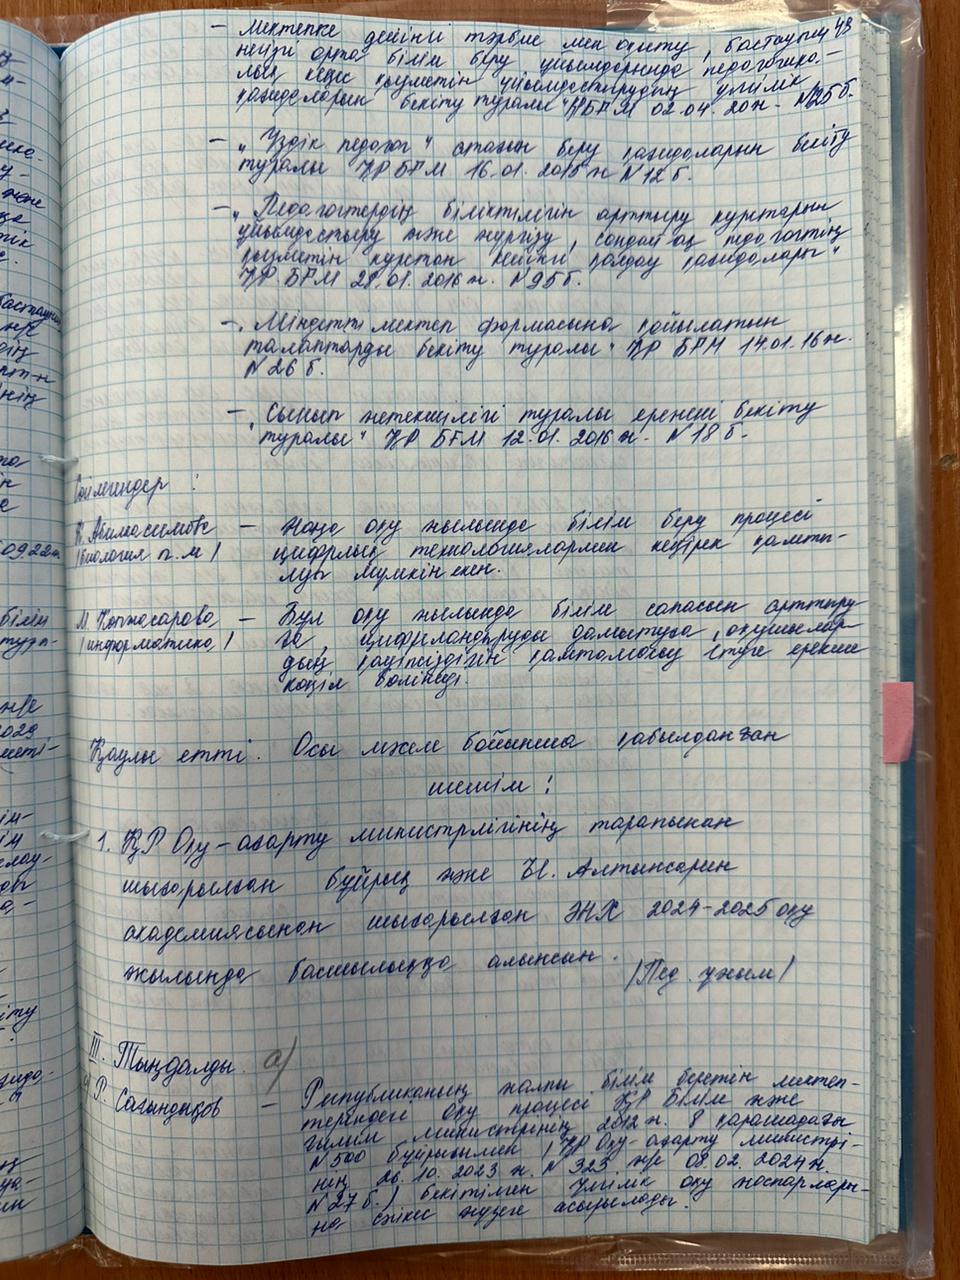 48
– Мектепке дейінги тәрбие мен оқыту, бастауыш
негізгі орта білім беру ұйымдарында педагогика-
лық кеңес қызметін ұйымдастырудың үлгілік
қағидаларын бекіту туралы" ҚБҒМ 02.04.20ж. №125б.
– „Үздік педагог" атағын беру қағидаларын бекіту
туралы ҚР БҒМ 16.01.2015ж №12б.
– „Педагогтердің біліктілігін арттыру курстарын
ұйымдастыру және жүргізу, сондай-ақ педагогтің
қызметін курстан кейінгі қолдау қағидалары"
ҚР БҒМ 28.01.2016ж. №95б.
– „Міндетті мектеп формасына қойылатын
талаптарды бекіту туралы" ҚР БҒМ 14.01.16ж.
№26б.
– „Сынып жетекшілігі туралы ережені бекіту
туралы" ҚР БҒМ 12.01.2016ж. №18б.
Сөйлегендер:
Абилкасимова – Жаңа оқу жылында білім беру процесі
/биология п.м/ цифрлық технологиялармен көбірек қамты-
луы мүмкін екен.
М. – Бұл оқу жылында білім сапасын арттыру
/информатика/ ға, цифрландыруды дамытуға, оқушылар-
дың қауіпсіздігін қамтамасыз етуге ерекше
көңіл бөлінеді.
Қаулы етті. Осы мәселе бойынша қабылданған
шешім:
1. ҚР Оқу-ағарту министрлігінің тарапынан
шығарылған бұйрық және Ы. Алтынсарин
академиясынан шығарылған ӘНХ 2024-2025 оқу
жылында басшылыққа алынсын.
/Пед. ұжым/
III. Тыңдалды. а)
Р. Сағындықов – Республиканың жалпы білім беретін мектеп-
теріндегі оқу процесі ҚР Білім және
ғылым министрінің 2012ж. 8 қарашадағы
№500 бұйрығымен /ҚР Оқу-ағарту министрі-
нің 26.10.2023ж. №323 ж/е 08.02.2024ж.
№27б./ бекітілген үлгілік оқу жоспарлары-
на сәйкес жүзеге асырылады.